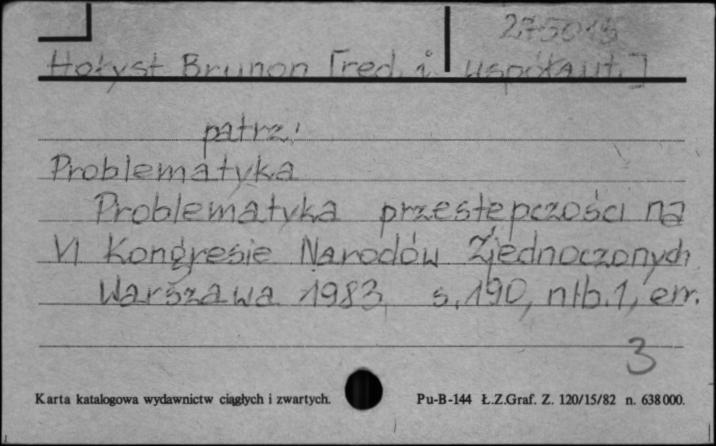 275015
Hołyst Brunon [red. i współaut.]
patrz:
Problematyka
Problematyka przestępczości na
VI Kongresie Narodów Zjednoczonych
Warszawa 1983 s. 190, nlb. 1, err.
3
Karta katalogowa wydawnictw ciągłych i zwartych.
Pu-B-144 Ł.Z.Graf. Z. 120/15/82 n. 638000.